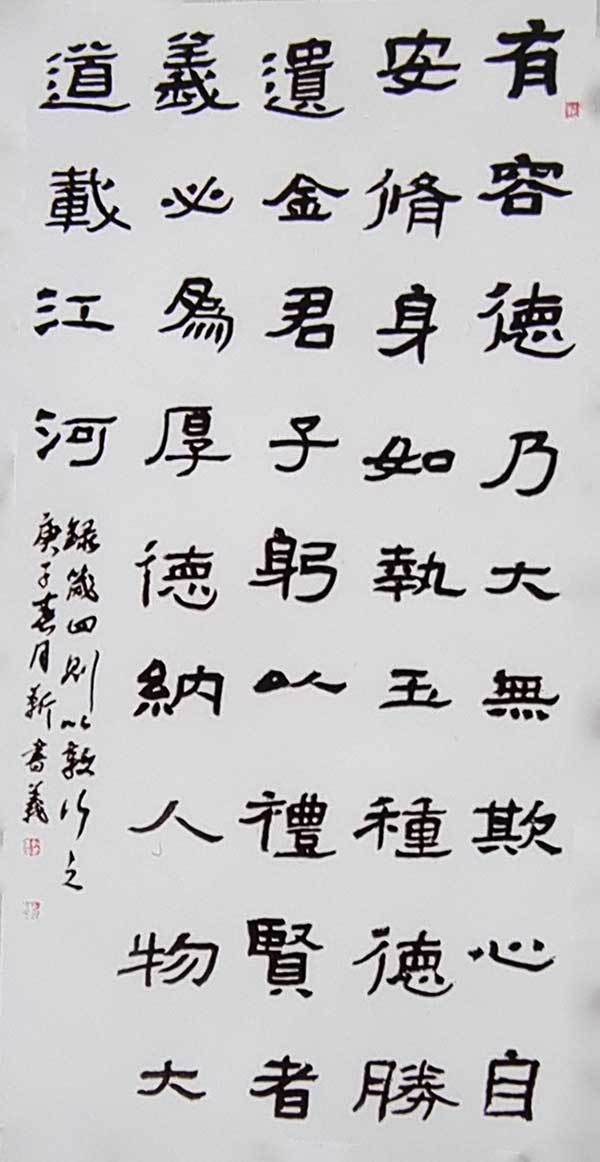 有容德乃大無欺心自
安脩身如執玉種德勝
遺金君子躬以禮賢者
義必為厚德納人物大
道載江河
錄箴四則以敦行之
庚子春月靳書義